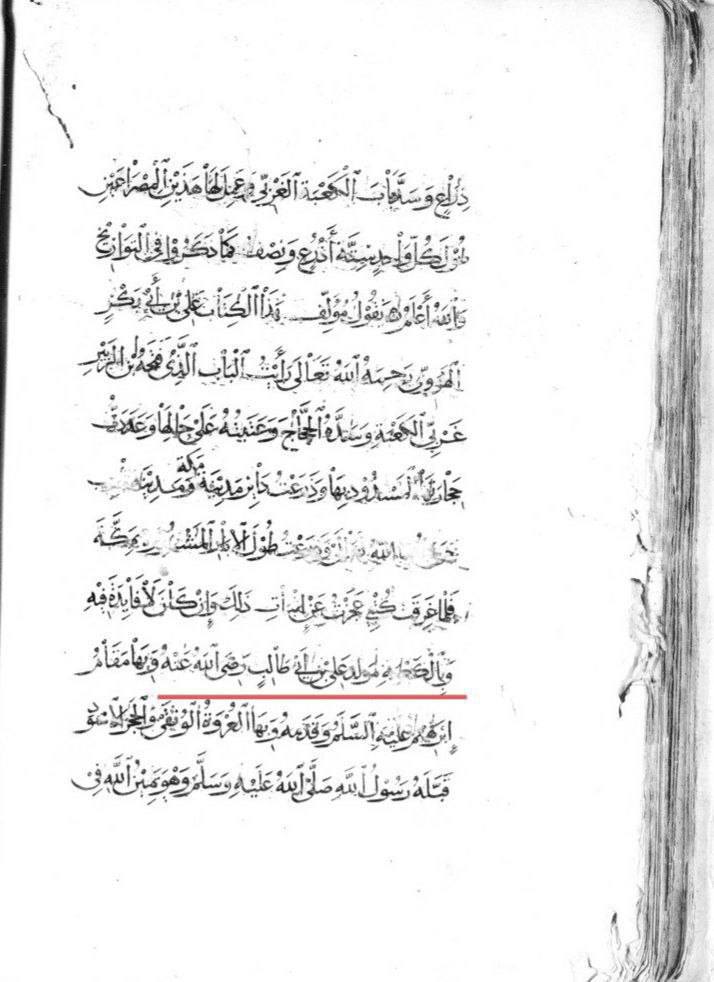 ذِرَاعٍ وَسَدَّ بَابَ الْكَعْبَةِ الْغَرْبِيَّ وَعَمِلَ لَهَا هَذَيْنِ الْمِصْرَاعَيْنِ
طُولُ كُلِّ وَاحِدٍ سِتَّةُ أَذْرُعٍ وَنِصْفٌ كَمَا ذَكَرُوا فِي التَّوَارِيخِ
وَاللهُ أَعْلَمُ يَقُولُ مُؤَلِّفُ هَذَا الْكِتَابِ عَلِيُّ بْنُ أَبِي بَكْرٍ
الْهَرَوِيُّ رَحِمَهُ اللهُ تَعَالَى رَأَيْتُ الْبَابَ الَّذِي فَتَحَهُ ابْنُ الزُّبَيْرِ
غَرْبِيَّ الْكَعْبَةِ وَسَدَّهُ الْحَجَّاجُ وَعَتَبَتُهُ عَلَى حَالِهَا وَعَدَدْتُ
حِجَارَتَهُ الْمَسْدُودَ بِهَا وَذَرَعْتُ دَايِرَ مَدِينَةِ مَكَّةَ وَمَدِينَةِ
رَسُولِ اللهِ طُولَ الْآبَارِ الْمَشْهُورَةِ بِمَكَّةَ
فَلَمَّا غَرِقَتْ كُتُبِي عَجَزْتُ عَنْ إِثْبَاتِ ذَلِكَ وَإِنْ كَانَ لَا فَايِدَةَ فِيهِ
وَبِالْكَعْبَةِ مَوْلِدُ عَلِيِّ بْنِ أَبِي طَالِبٍ رَضِيَ اللهُ عَنْهُ وَبِهَا مَقَامُ
إِبْرَهِيمَ عَلَيْهِ السَّلَمُ وَقَدَمِهِ وَبِهَا الْعُرْوَةُ الْوُثْقَى وَالْحَجَرُ الْأَسْوَدُ
قَبَّلَهُ رَسُولُ اللَّهِ صَلَّى اللهُ عَلَيْهِ وَسَلَّمَ وَهُوَ يَمِينُ اللَّهِ فِي